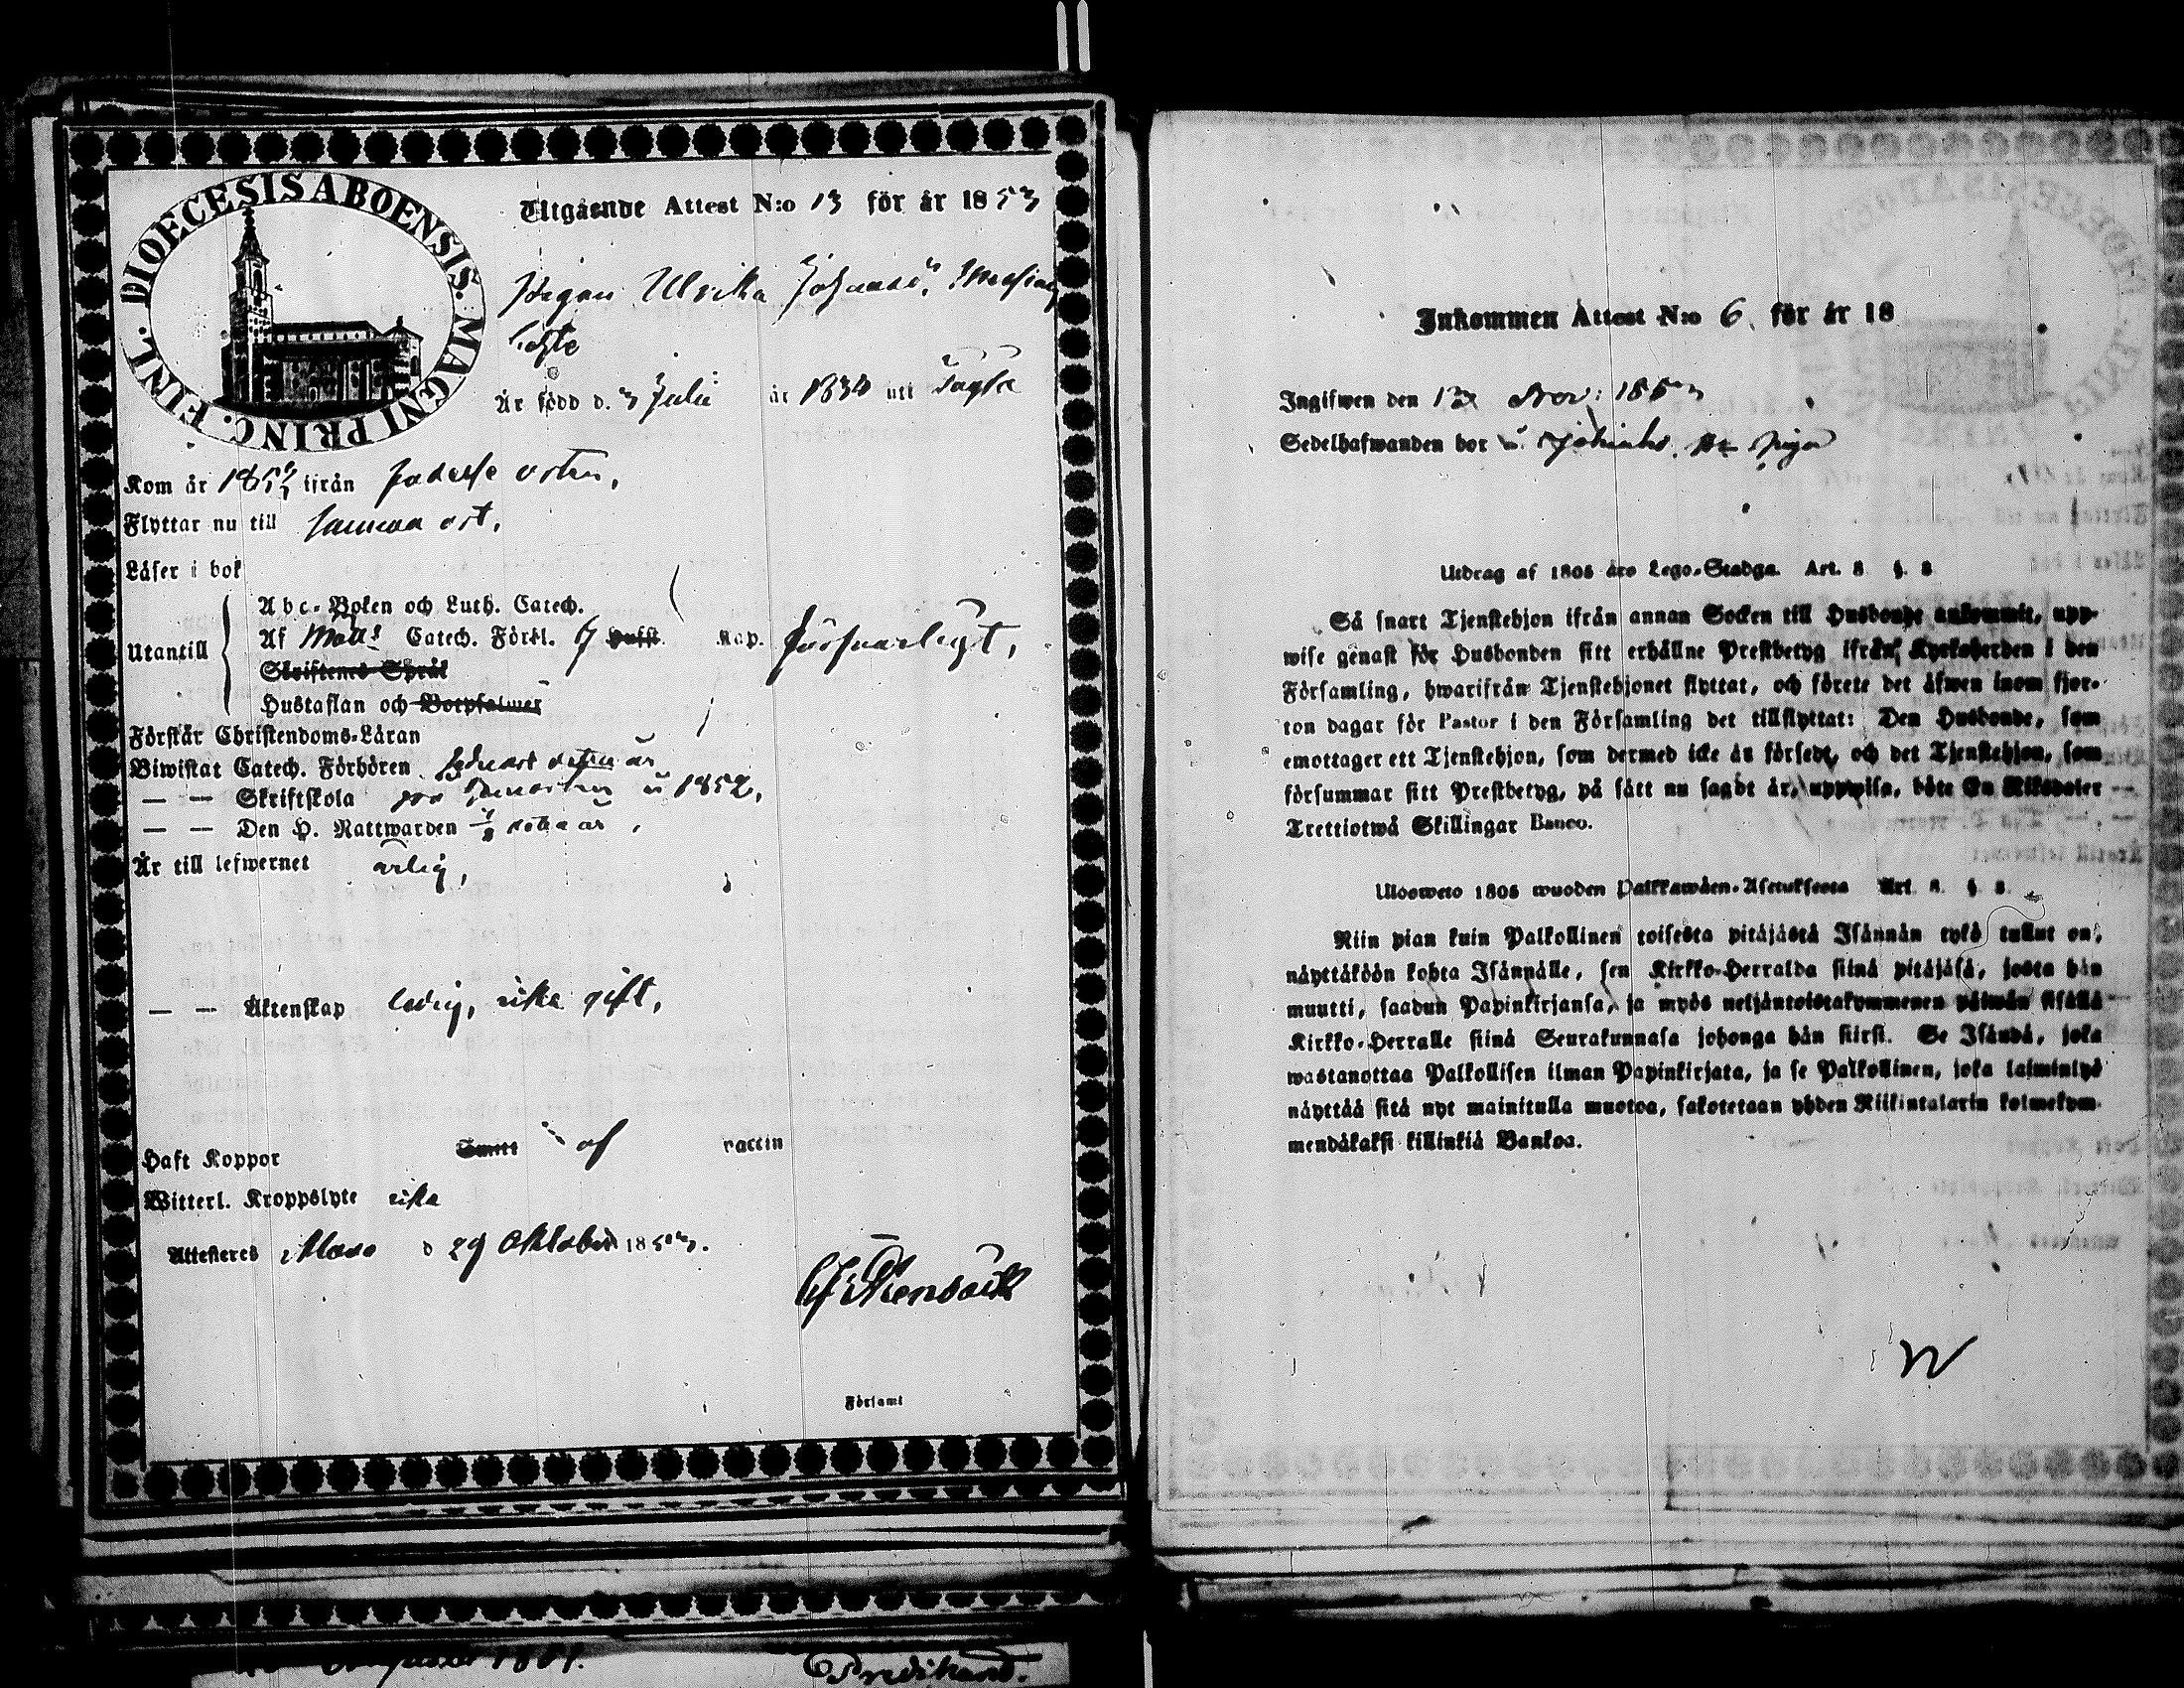 DIOECESIS ABOENSIS. MAGNI PRINC. FINL.
Utgående Attest N:o 13 för år 1853
Pigan Ulrika
Är född d. 3 Juli år 1834 uti
Kom år 1853 ifrån orten,
Flyttar nu till samma ort.
Läser i bok
Utantill
Abc-Boken och Luth. Catech.
Af Möll: Catech. Förkl. Kap. försvarligt,
Skriftenes Språk
Hustaflan och Botpsalmer
Förstår Christendoms-Läran
Biwistat Catech. Förhören
— — Skriftskola 1852,
— — Den H. Nattwarden
Är till lefwernet ärlig,
— — Äktenskap ledig, icke gift,
Haft Koppor Smitt af vaccin
Witterl. Kroppslyte icke
Attesteres d 29 Oktober 1853.
Församl
1851.
Inkommen Attest N:o 6. för år 18
Ingifwen den 13 Nov: 1853
Sedelhafwanden bor
Utdrag af 1805 års Lego-Stadga. Art. 8 §. 8
Så snart Tjenstehjon ifrån annan Socken till Husbonde ankommit, upp-
wise genast för Husbonden sitt erhållne Prestbetyg ifrån Kyrkoherden i den
Församling, hwarifrån Tjenstehjonet flyttat, och förete det äfwen inom fjor-
ton dagar för Pastor i den Församling det tillflyttat: Den Husbonde, som
emottager ett Tjenstehjon, som dermed icke är försedt, och det Tjenstehjon, som
försummar sitt Prestbetyg, på sätt nu sagdt är, uppwisa, böte En Riksdaler
Trettiotwå Skillingar Banco.
Ulosweto 1805 wuoden Palkkawäen-Asetuksesta Art. 8. §. 8.
Niin pian kuin Palkollinen toisesta pitäjästä Isännän tykö tullut on,
näyttäköön kohta Isännälle, sen Kirkko-Herralda siinä pitäjäsä, josta hän
muutti, saadun Papinkirjansa, ja myös neljäntoistakymmenen päiwän sisällä
Kirkko-Herralle siinä Seurakunnasa johonga hän siirsi. Se Isändä, joka
wastanottaa Palkollisen ilman Papinkirjata, ja se Palkollinen, joka laiminlyö
näyttää sitä nyt mainitulla muotoa, sakotetaan yhden Riikintalarin kolmekym-
mendäkaksi killinkiä Bankoa.